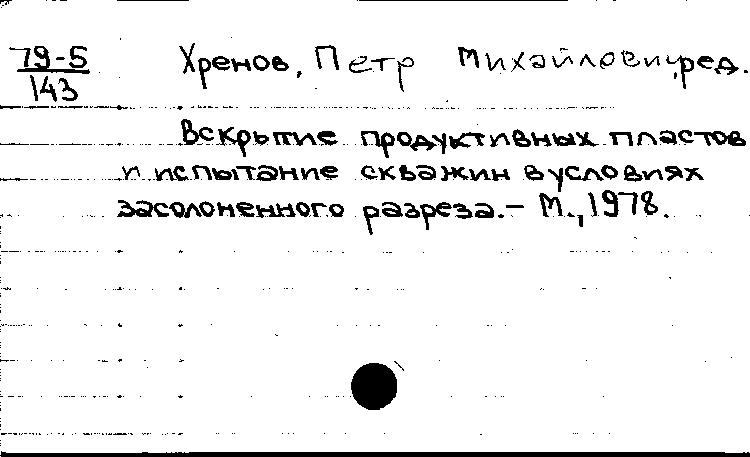 79-5
143
Хренов, Петр Михайлович, ред.
Вскрытие продуктивных пластов
и испытание скважин в условиях
засолоненного разреза.- М., 1978.